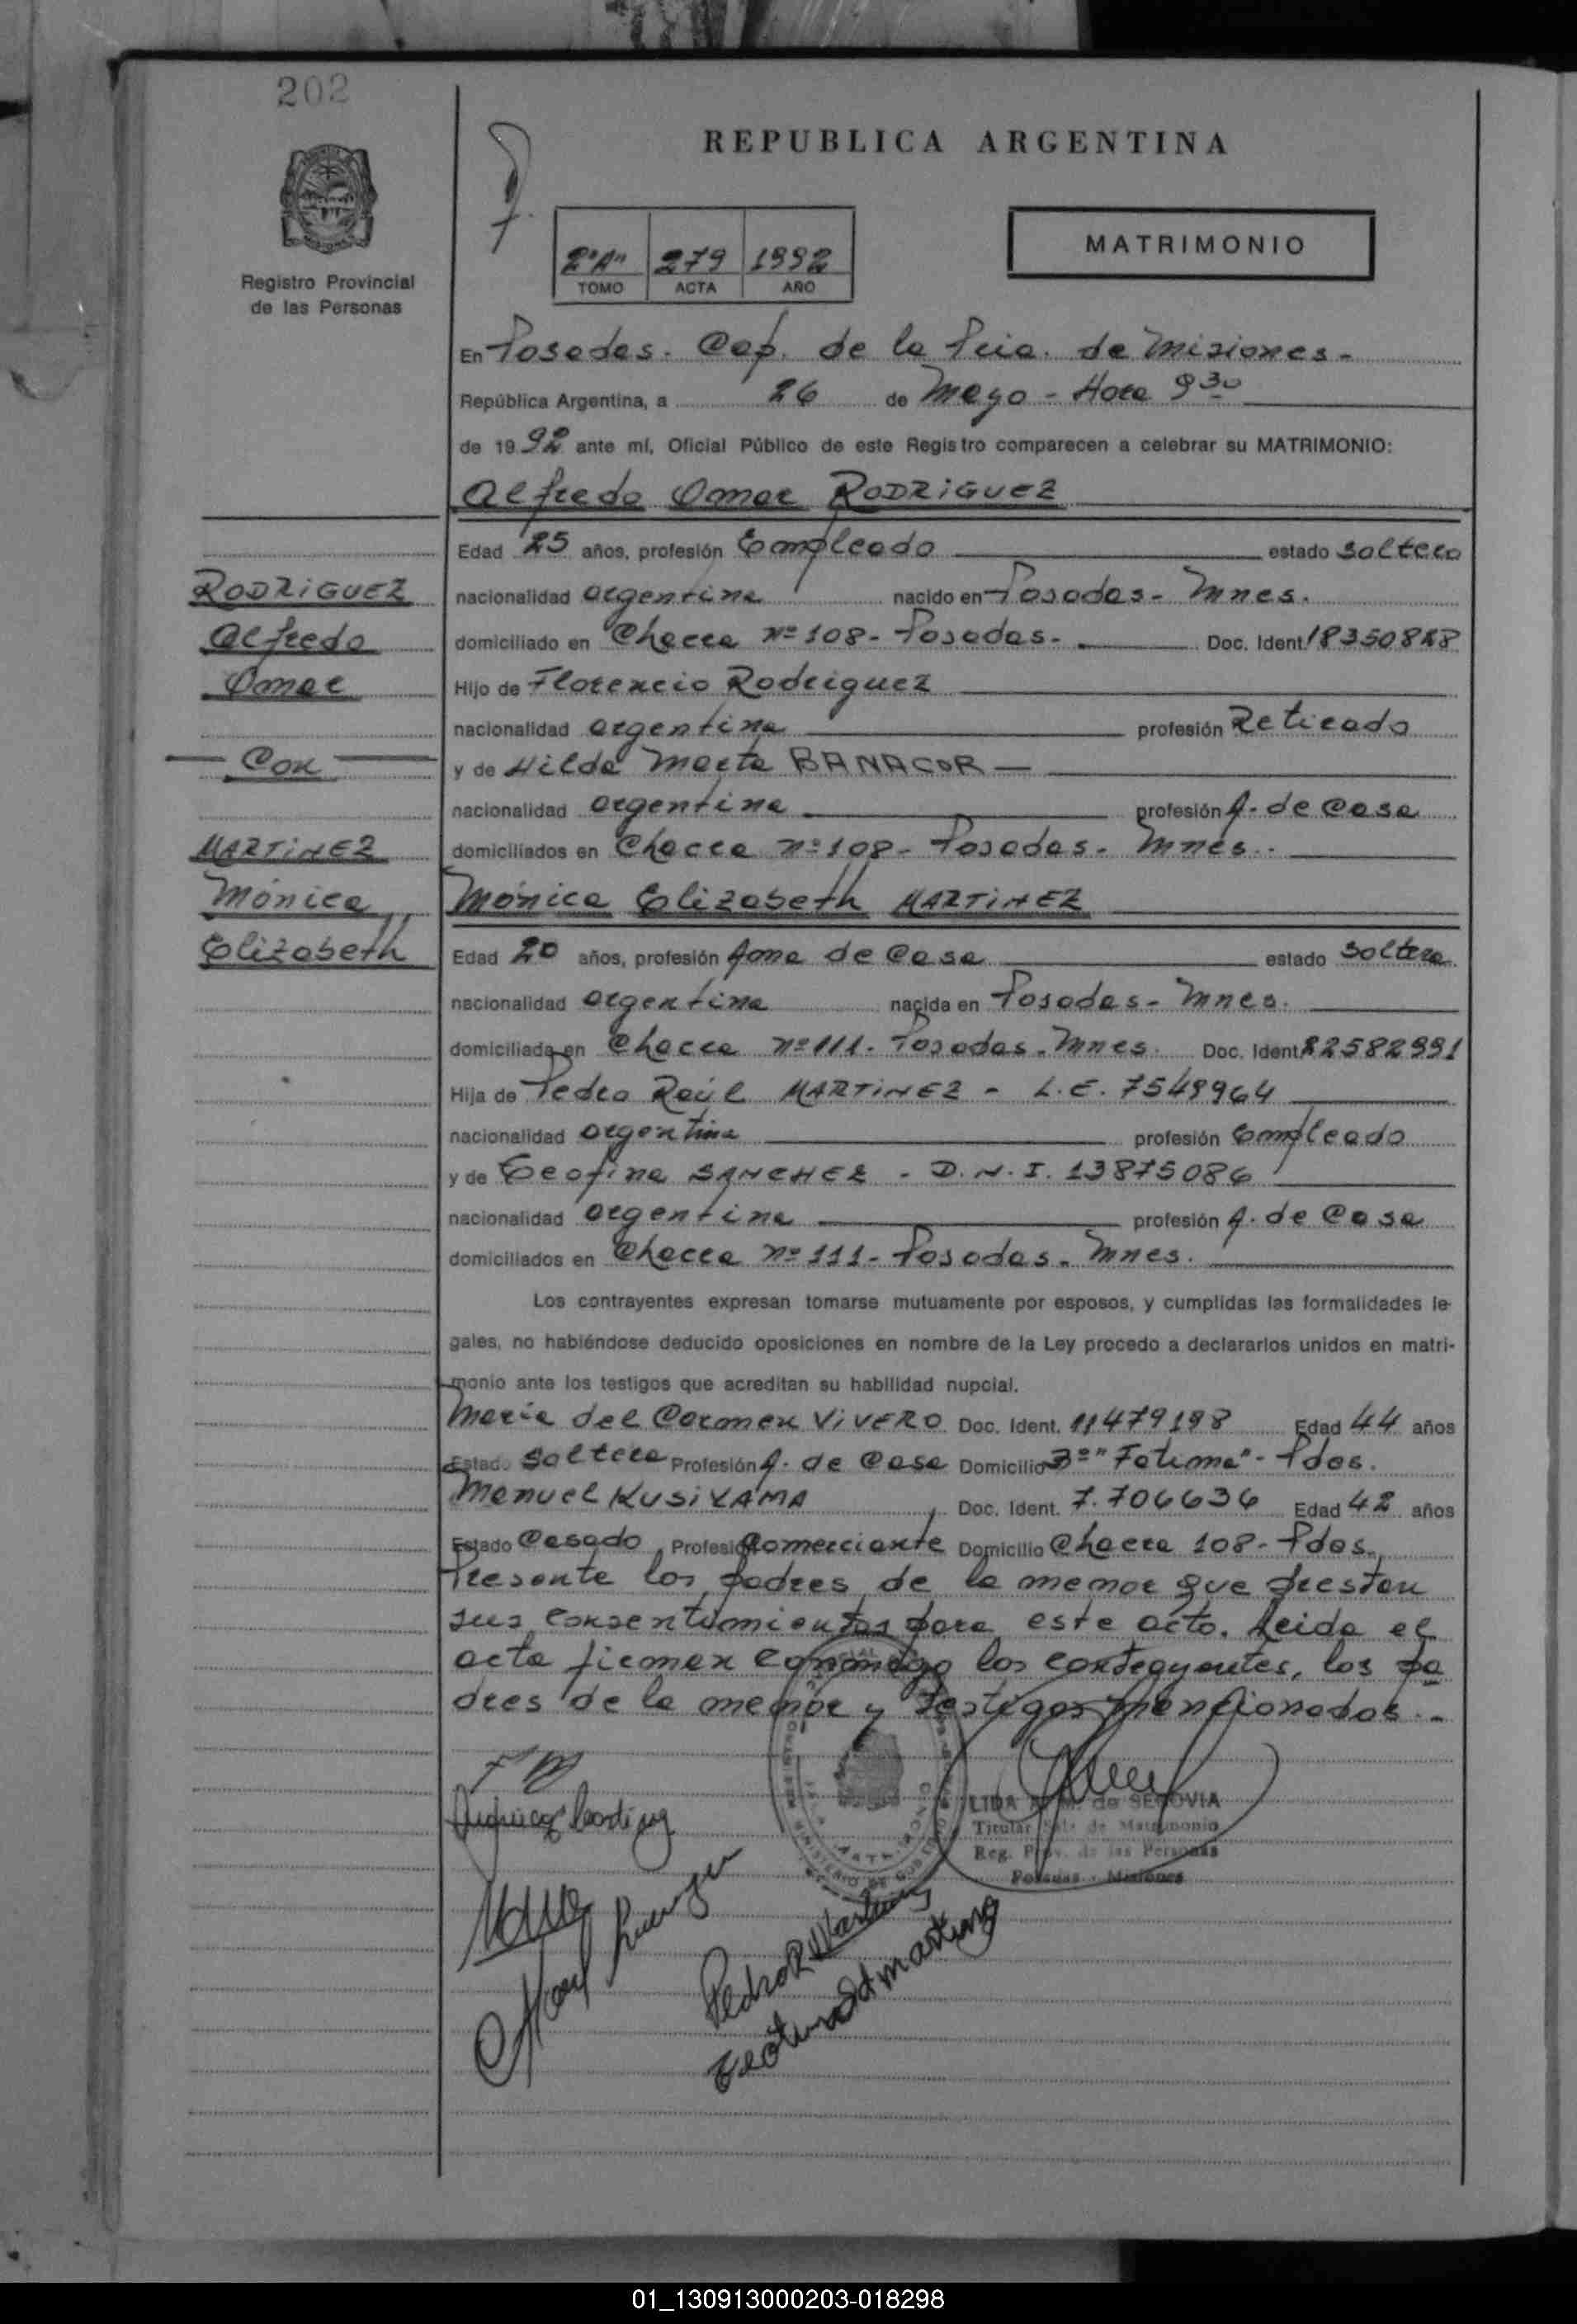 202
REPUBLICA ARGENTINA
Registro Provincial
de las Personas
2º"A" 279 1992
TOMO ACTA AÑO
MATRIMONIO
En Posadas. Cap. de la Pcia. de Misiones.-
República Argentina, a 26 de Mayo - Hora 9 30
de 1992 ante mí, Oficial Público de este Registro comparecen a celebrar su MATRIMONIO:
Alfredo Omar RODRIGUEZ
Edad 25 años, profesión Empleado estado Soltero
RODRIGUEZ
nacionalidad argentina nacido en Posadas- Mnes.
Alfredo
domiciliado en Chacra Nº 108- Posadas.- Doc. Ident.
Omar
Hijo de Florencio Rodriguez
nacionalidad argentina profesión Retirado
Con
y de Hilda Marta BANACOR
nacionalidad argentina profesión A. de Casa
MARTINEZ
domiciliados en Chacra Nº 108- Posadas- Mnes.-
Mónica
Mónica Elizabeth MARTINEZ
Elizabeth
Edad 20 años, profesión Ama de Casa estado Soltera
nacionalidad argentina nacida en Posadas- Mnes.
domiciliada en Chacra Nº 111- Posadas. Mnes. Doc. Ident. 22582991
Hija de Pedro Raúl MARTINEZ - L.E. 7549964
nacionalidad argentina profesión Empleado
y de Ceofina SANCHEZ - D.N.I. 13875086
nacionalidad argentina profesión A. de Casa
domiciliados en Chacra Nº 111- Posadas. Mnes.
Los contrayentes expresan tomarse mutuamente por esposos, y cumplidas las formalidades le-
gales, no habiéndose deducido oposiciones en nombre de la Ley procedo a declararlos unidos en matri-
monio ante los testigos que acreditan su habilidad nupcial.
María del Carmen VIVERO Doc. Ident. 11479198 Edad 44 años
Estado Soltera Profesión A. de Casa Domicilio Bº "Fatima"- Pdas.
Manuel KUSIYAMA Doc. Ident. 7.706636 Edad 42 años
Estado Casado Profesión Comerciante Domicilio Chacra 108- Pdas.
Presente los padres de la menor que prestan
sus consentimientos para este acto. Leida el
acta firman conmigo los contrayentes, los pa
dres de la menor y testigos mencionados.-
LIDA M. de SEGOVIA
Titular Sala de Matrimonio
Reg. Prov. de las Personas
Posadas - Misiones
Pedro R Martinez
01_130913000203-018298